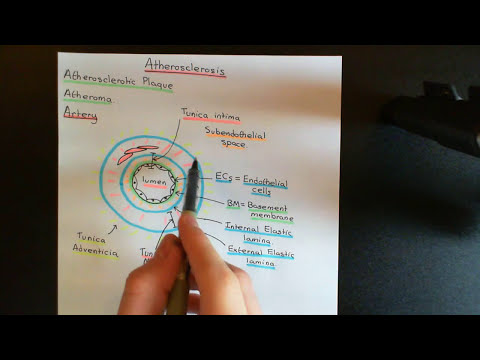 Atherosclerosis
Atherosclerotic Plaque
Atheroma
Artery
Tunica intima
Subendothelial
space
lumen
ECs = Endothelial
cells
BM = Basement
membrane
Internal Elastic
lamina
External Elastic
lamina
Tunica
Adventicia